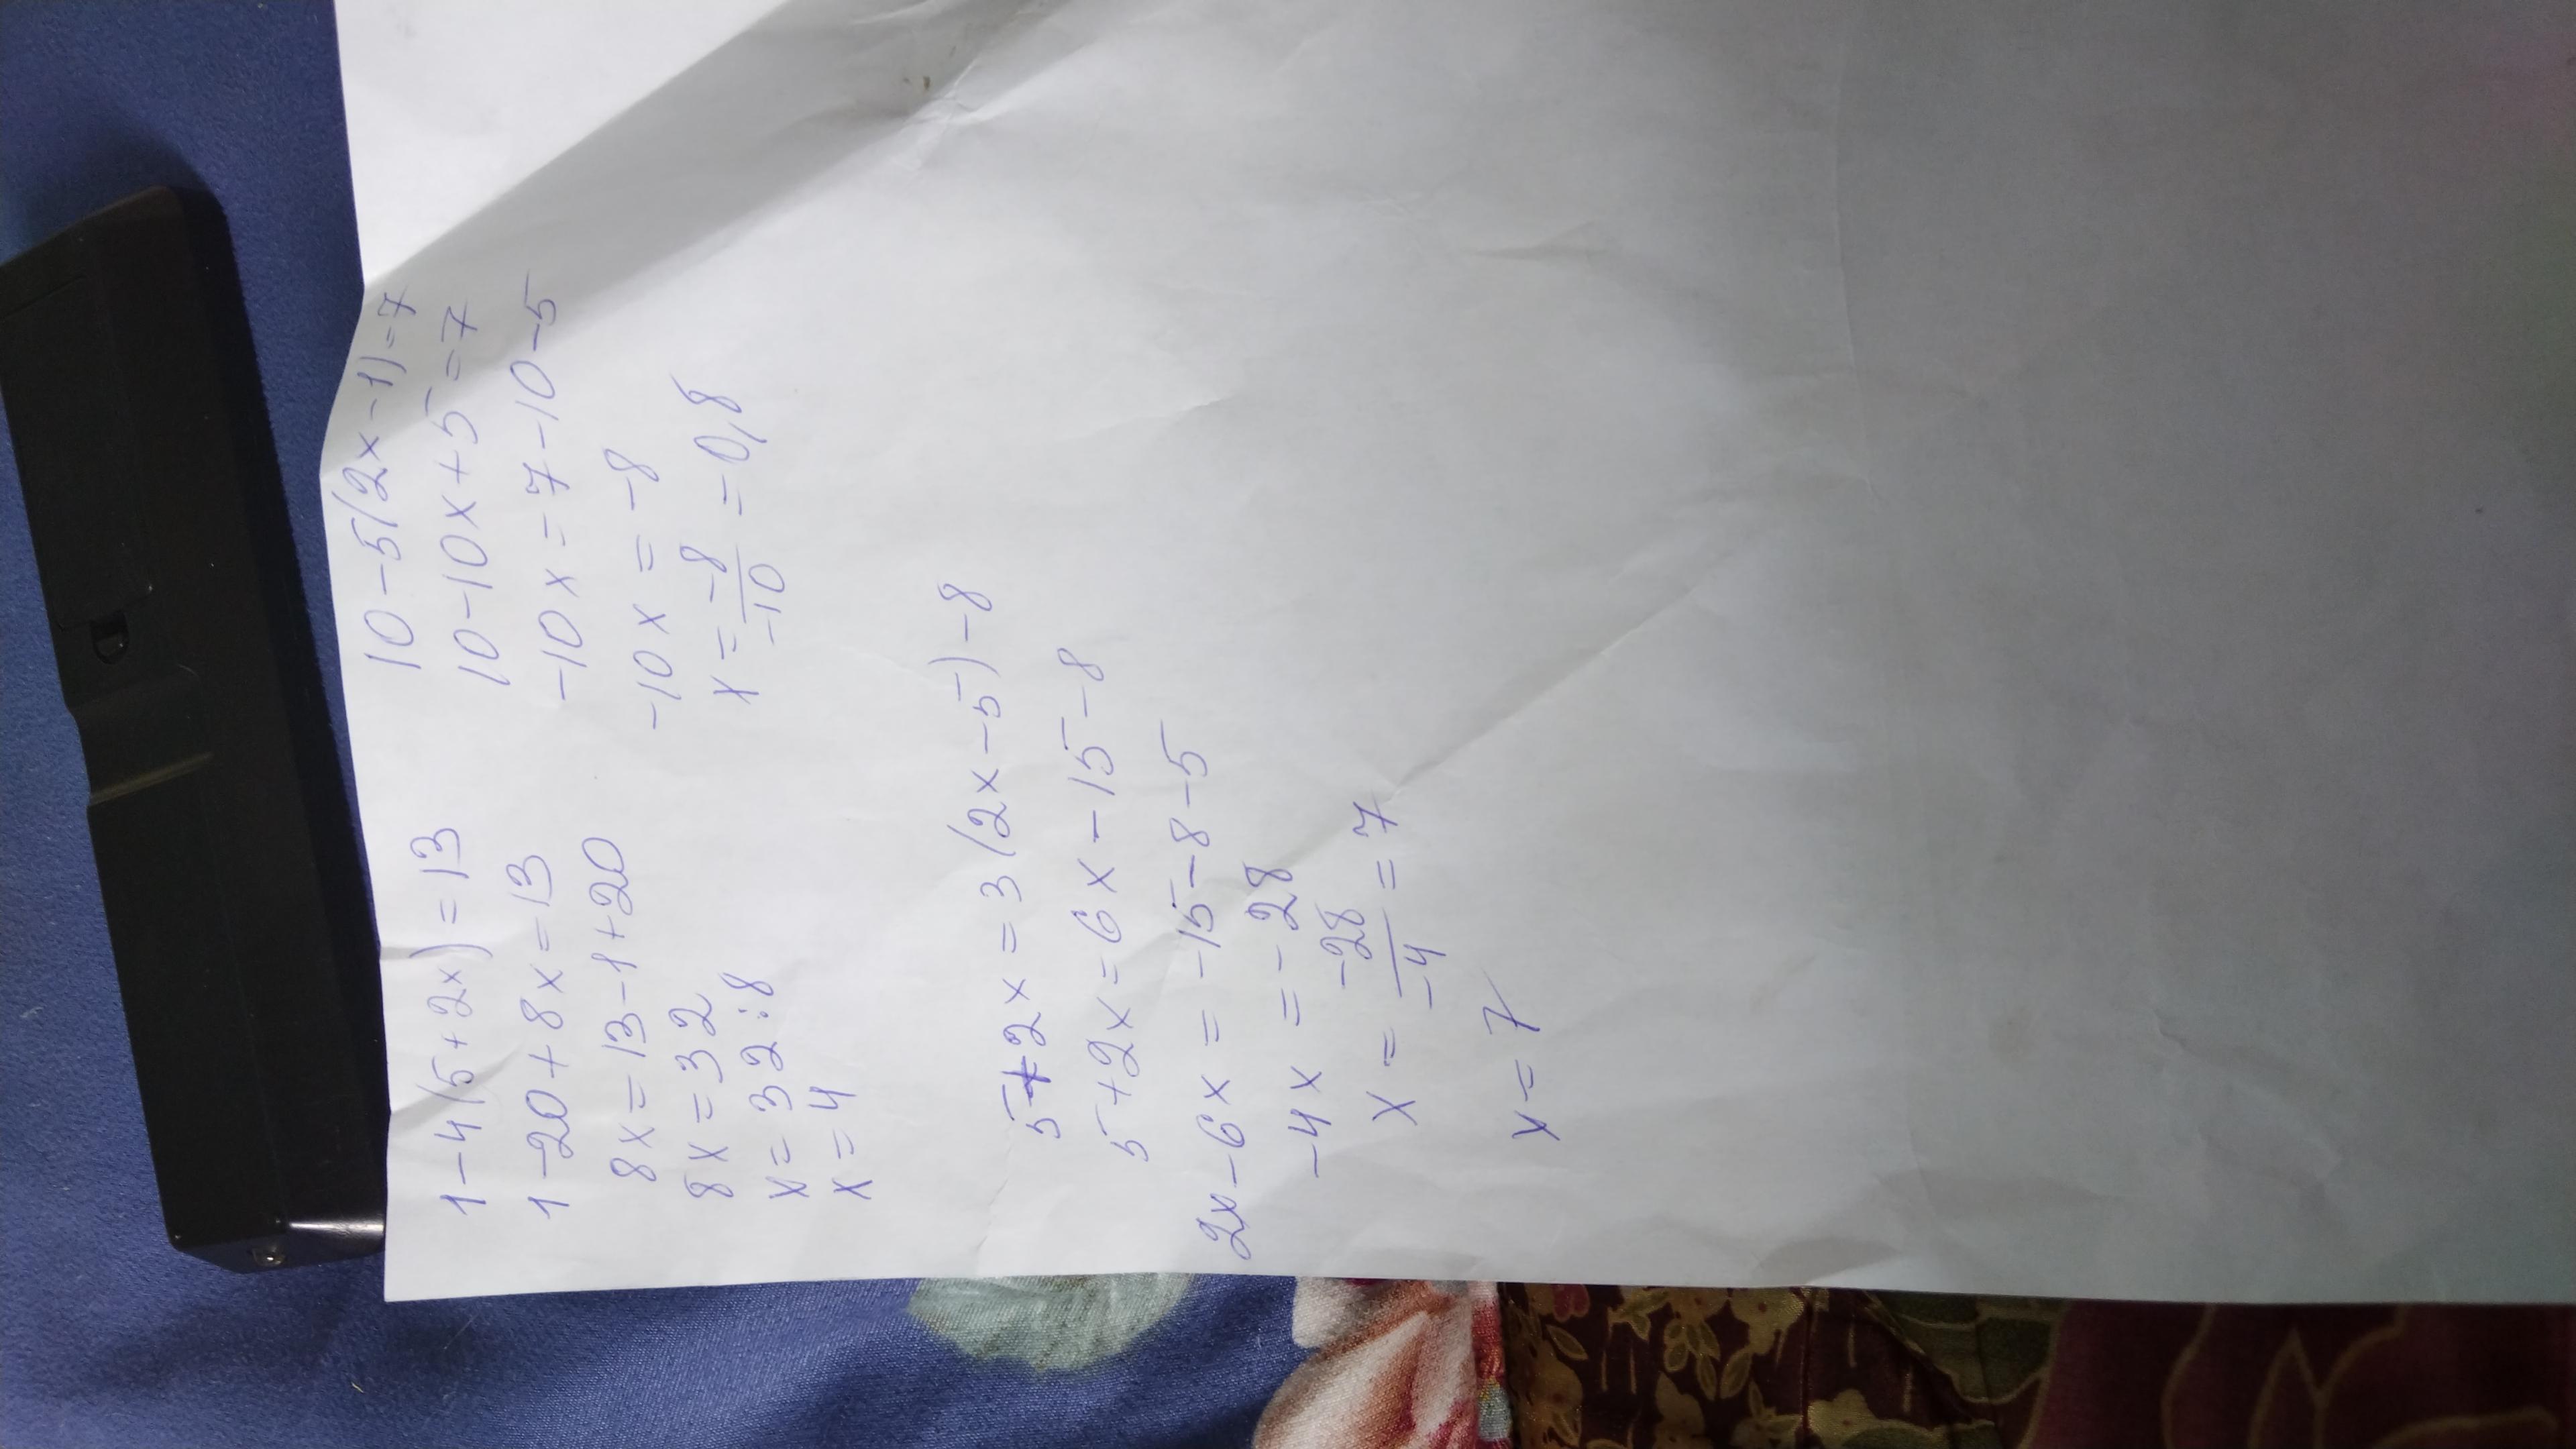 1-4(5+2x)=13
1-20+8x=13
8x=13-1+20
8x=32
x=32:8
x=4
10-5(2x-1)=7
10-10x+5=7
-10x=7-10-5
-10x=-8
x=-8/-10=0,8
5+2x=3(2x-5)-8
5+2x=6x-15-8
2x-6x=-15-8-5
-4x=-28
x=-28/-4=7
x=7